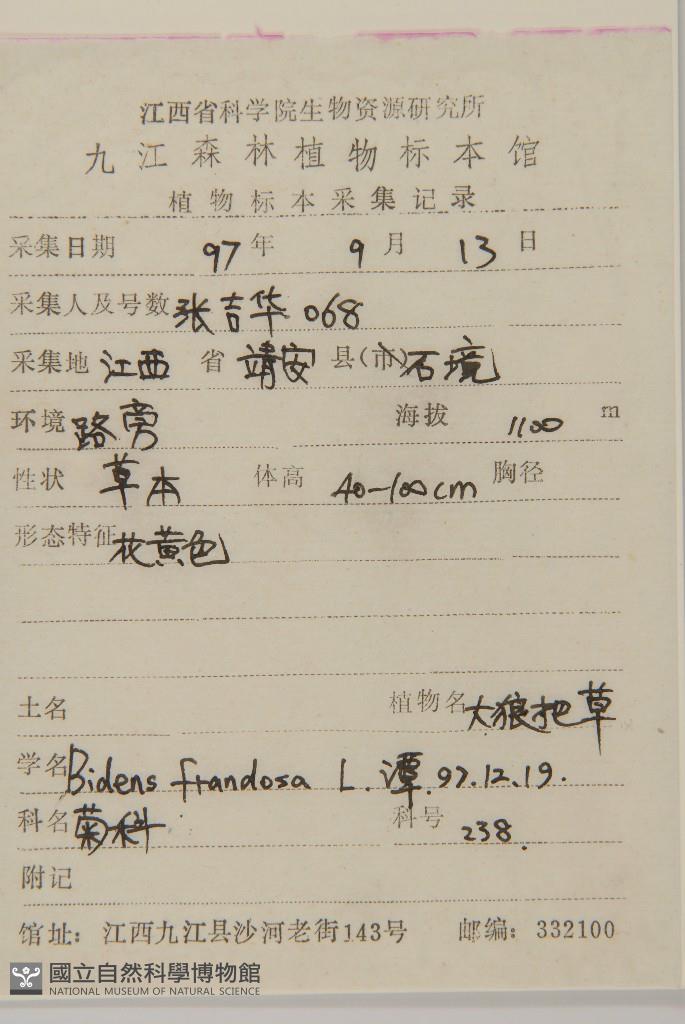 江西省科学院生物资源研究所
九江森林植物标本馆
植物标本采集记录
采集日期 97 年 9 月 13 日
采集人及号数 张吉华 068
采集地 江西 省 靖安 县(市) 石境
环境 路旁 海拔 1100 m
性状 草本 体高 40-100cm 胸径
形态特征 花黄色
土名 植物名 大狼把草
学名 Bidens frandosa L. 谭.97.12.19.
科名 菊科 科号 238.
附记
馆址：江西九江县沙河老街143号 邮编：332100
國立自然科學博物館
NATIONAL MUSEUM OF NATURAL SCIENCE